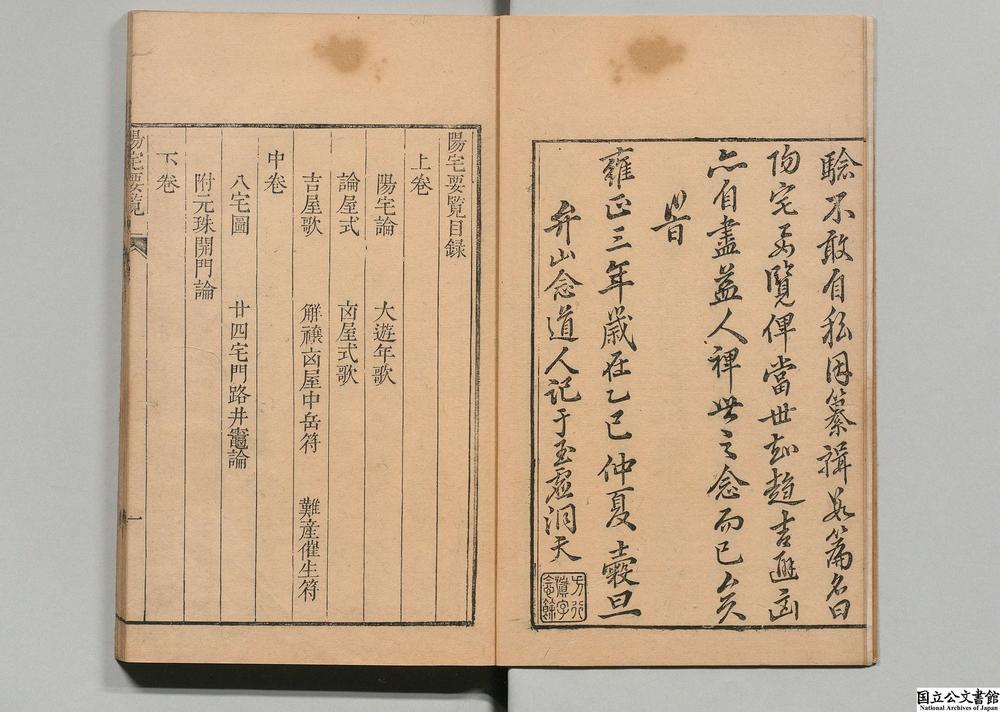 驗不敢自私因纂輯此篇名曰
陽宅要覽俾當世知趨吉避凶
亦自盡益人裨世之念而已矣
旹
雍正三年歲在乙巳仲夏穀旦
弁山念道人記于玉虛洞天
陽宅要覽目録
上卷
陽宅論 大遊年歌
論屋式 凶屋式歌
吉屋歌 觧禳凶屋中岳符 難産催生符
中卷
八宅圖 廿四宅門路井竈論
附元珠開門論
下卷
陽宅要覽
一
国立公文書館
National Archives of Japan